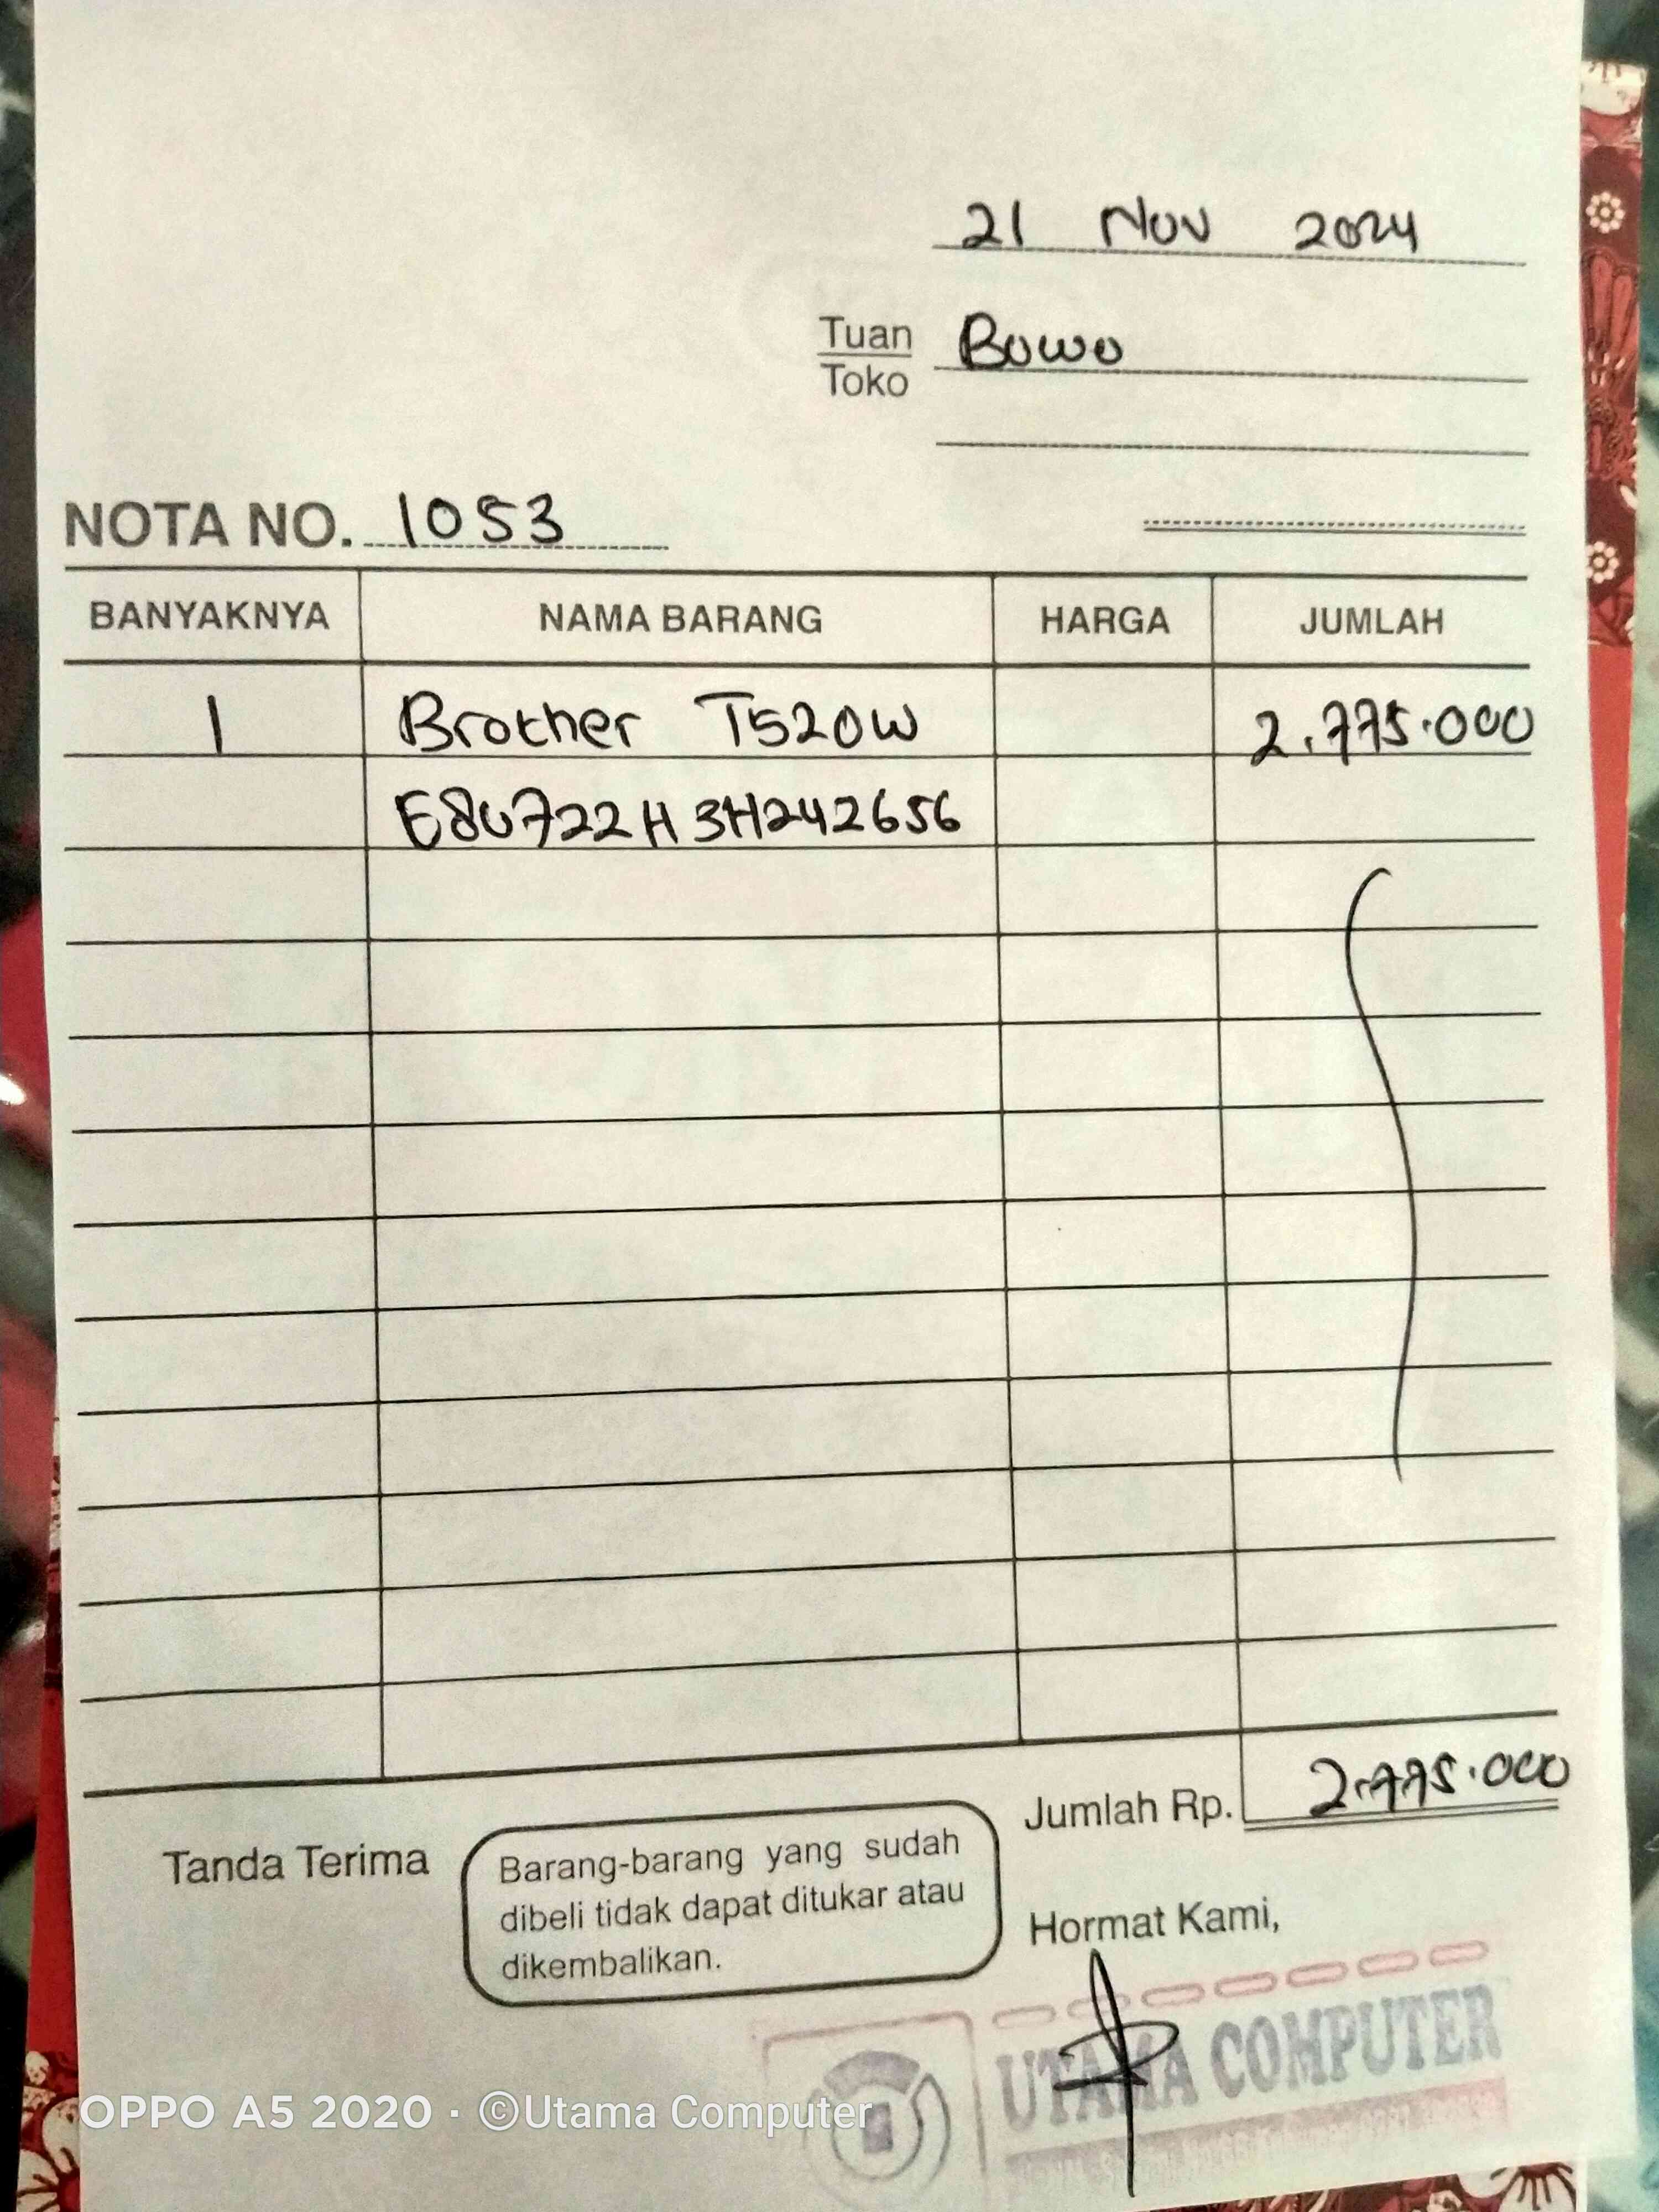 21 Nov 2024
Tuan Bowo
Toko
NOTA NO. 1053
BANYAKNYA NAMA BARANG HARGA JUMLAH
1 Brother T520W 2.775.000
E80722H3H242656
Jumlah Rp. 2.775.000
Tanda Terima
Barang-barang yang sudah
dibeli tidak dapat ditukar atau
dikembalikan.
Hormat Kami,
UTAMA COMPUTER
OPPO A5 2020 · ©Utama Computer